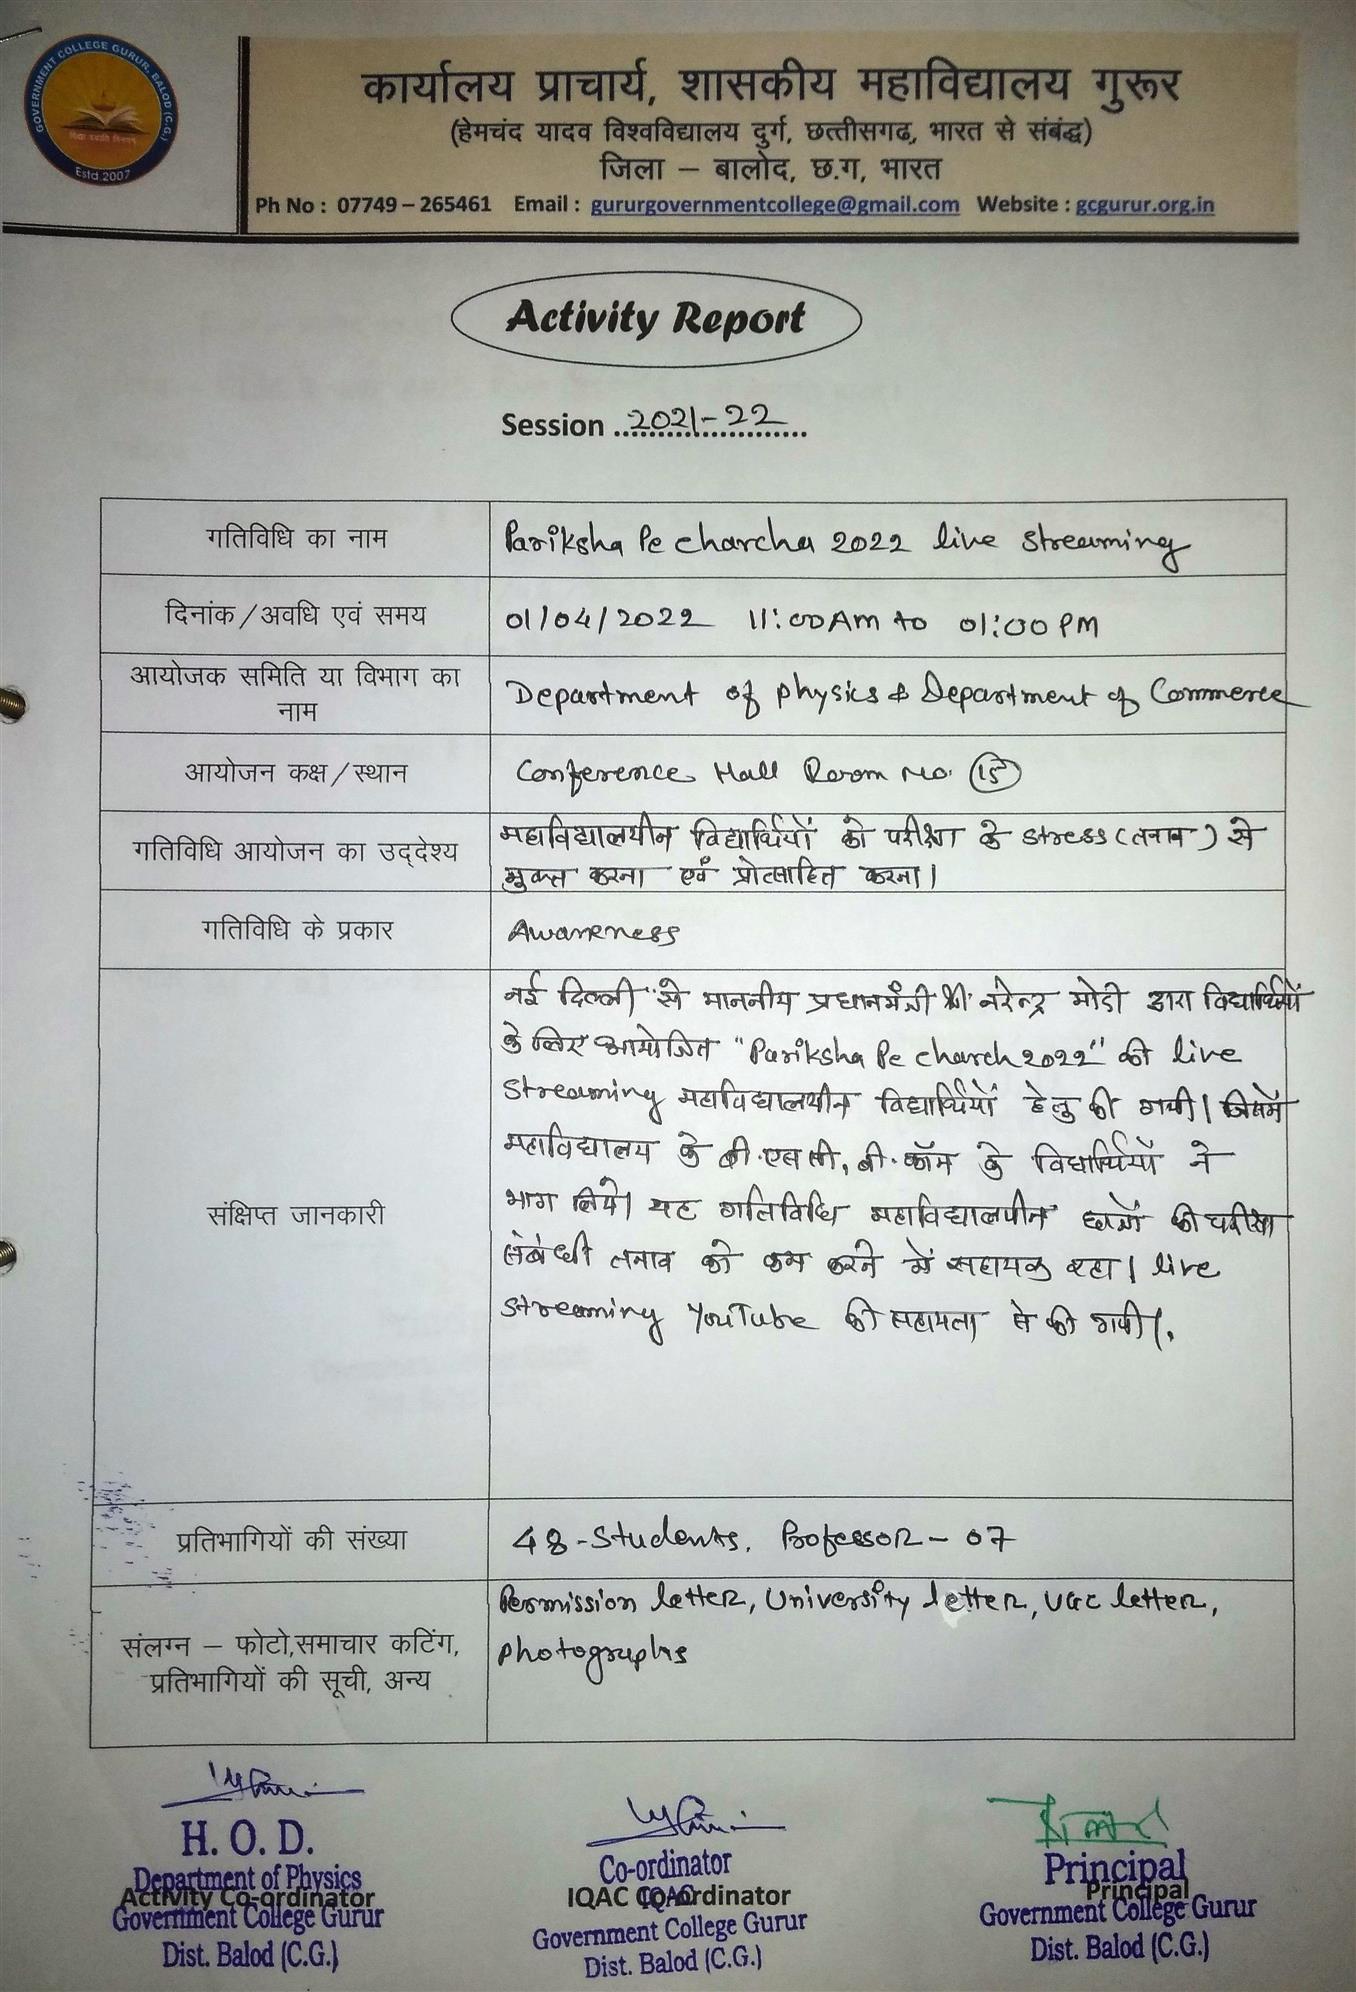 GOVERNMENT COLLEGE GURUR, BALOD (C.G.)
Estd.2007
कार्यालय प्राचार्य, शासकीय महाविद्यालय गुरूर
(हेमचंद यादव विश्वविद्यालय दुर्ग, छत्तीसगढ, भारत से संबंद्ध)
जिला – बालोद, छ.ग, भारत
Ph No : 07749 – 265461 Email : gururgovernmentcollege@gmail.com Website : gcgurur.org.in
Activity Report
Session 2021-22
गतिविधि का नाम
Pariksha Pe charcha 2022 live streaming
दिनांक/अवधि एवं समय
01/04/2022 11:00AM to 01:00PM
आयोजक समिति या विभाग का
नाम
Department of physics & Department of Commerce
आयोजन कक्ष/स्थान
Conference Hall Room No. 15
गतिविधि आयोजन का उद्देश्य
महाविद्यालयीन विद्यार्थियों को परीक्षा के stress (तनाव) से
मुक्त करना एवं प्रोत्साहित करना।
गतिविधि के प्रकार
Awareness
संक्षिप्त जानकारी
नई दिल्ली से माननीय प्रधानमंत्री श्री नरेन्द्र मोदी द्वारा विद्यार्थियों
के लिए आयोजित "Pariksha Pe charch 2022" की live
streaming महाविद्यालयीन विद्यार्थियों हेतु की गयी। जिसमें
महाविद्यालय के बी.एस सी, बी.कॉम के विद्यार्थियों ने
भाग लिये। यह गतिविधि महाविद्यालयीन छात्रों की परीक्षा
संबंधी तनाव को कम करने में सहायक रहा। live
streaming YouTube की सहायता से की गयी।
प्रतिभागियों की संख्या
48-Students, Professor - 07
संलग्न – फोटो,समाचार कटिंग,
प्रतिभागियों की सूची, अन्य
Permission letter, University letter, UGC letter,
photographs
H. O. D.
Department of Physics
Activity Co-ordinator
Government College Gurur
Dist. Balod (C.G.)
Co-ordinator
IQAC
IQAC Co-ordinator
Government College Gurur
Dist. Balod (C.G.)
Principal
Principal
Government College Gurur
Dist. Balod (C.G.)